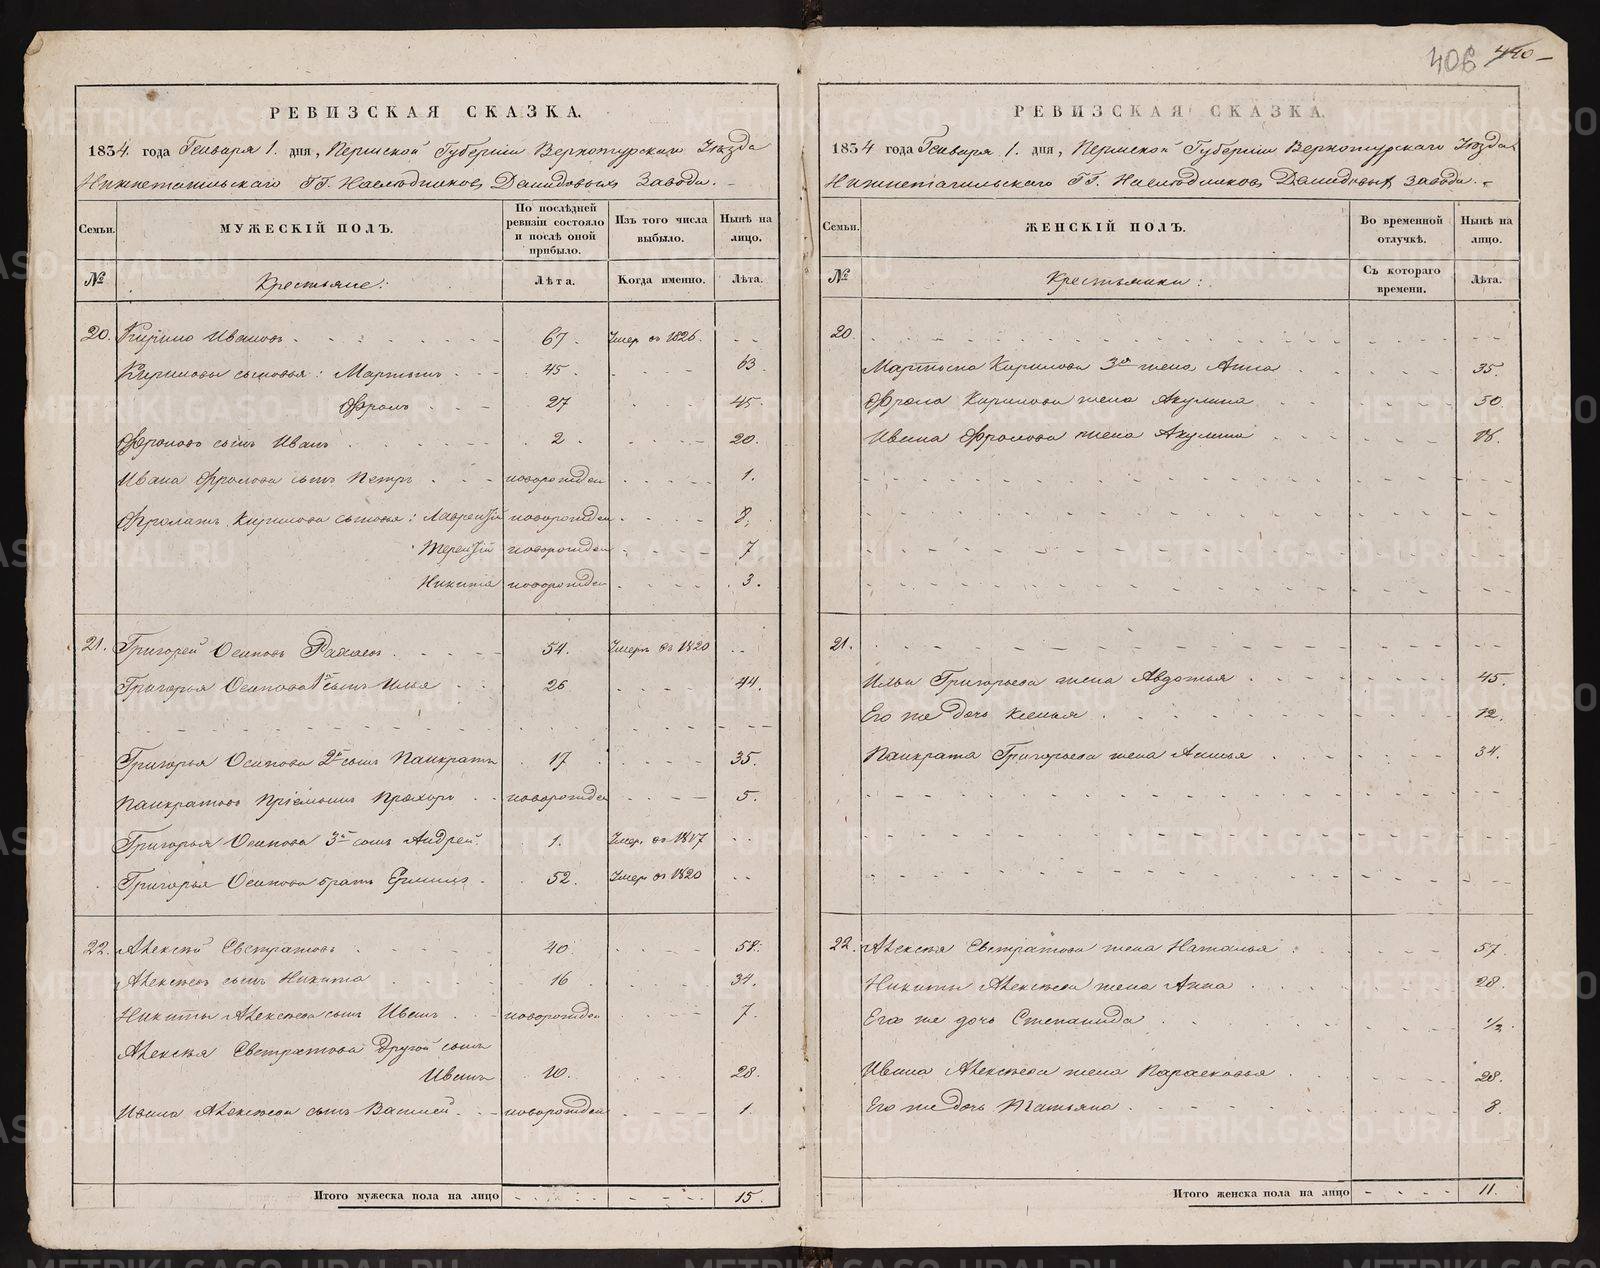 406 440
РЕВИЗСКАЯ СКАЗКА.
1834. года Генваря 1. дня, Пермской Губернии Верхотурскаго Уезда
Нижнетагильскаго ГГ. Наследников Демидовых Завода.
Семьи.
МУЖЕСКІЙ ПОЛЪ.
По послѣдней ревизіи состояло и послѣ оной прибыло.
Изъ того числа выбыло.
Нынѣ на лицо.
№
Крестьяне:
Лѣта.
Когда именно.
Лѣта.
20. Кирило Иванов 67. Умер въ 1826.
Кириловы сыновья: Мартынъ 45. 63.
Фролъ 27 45.
Фроловъ сынъ Иванъ 2. 20.
Ивана Фролова сынъ Петръ новорожден 1.
Кирилова сыновья: Лаврентій новорожден 8.
Терентій новорожден 7
Никита новорожден 3.
21. Григорей Осиповъ 54. Умеръ въ 1820
Григорья Осипова 1й сынъ Илья 26 44.
Григорья Осипова 2й сынъ Панкратъ 17 35.
Панкратовъ пріемышъ Прохоръ новорожден 5.
Григорья Осипова 3й сынъ Андрей. 1. Умер. въ 1817
Григорья Осипова братъ 52. Умер въ 1820
22. Алексѣй Евстратовъ 40. 58.
Алексѣевъ сынъ Никита 16 34.
Никиты Алексѣева сынъ Иванъ новорожден 7.
Алексѣя Евстратова другой сынъ
Иванъ 10. 28.
Ивана Алексѣева сынъ Василей новорожден 1
Итого мужеска пола на лицо 15.
РЕВИЗСКАЯ СКАЗКА.
1834 года Генваря 1. дня, Пермской Губернии Верхотурскаго Уезда
Нижнетагильскаго ГГ. Наследников Демидовых завода.
Семьи.
ЖЕНСКІЙ ПОЛЪ.
Во временной отлучкѣ.
Нынѣ на лицо.
№
Крестьянки:
Съ котораго времени.
Лѣта.
20.
Мартына Кирилова 3я жена Анна 35.
Фрола Кирилова жена Акулина 50.
Ивана Фролова жена Акулина 18.
21.
Ильи Григорьева жена Авдотья 45.
Его же дочь Ксенья 12.
Панкрата Григорьева жена Анисья 34.
22. Алексѣя Евстратова жена Наталья 57
Никиты Алексѣева жена Анна 28.
Его же дочь Степанида 1/2.
Ивана Алексѣева жена Парасковья 28.
Его же дочь Татьяна 3.
Итого женска пола на лицо 11.
METRIKI.GASO-URAL.RU